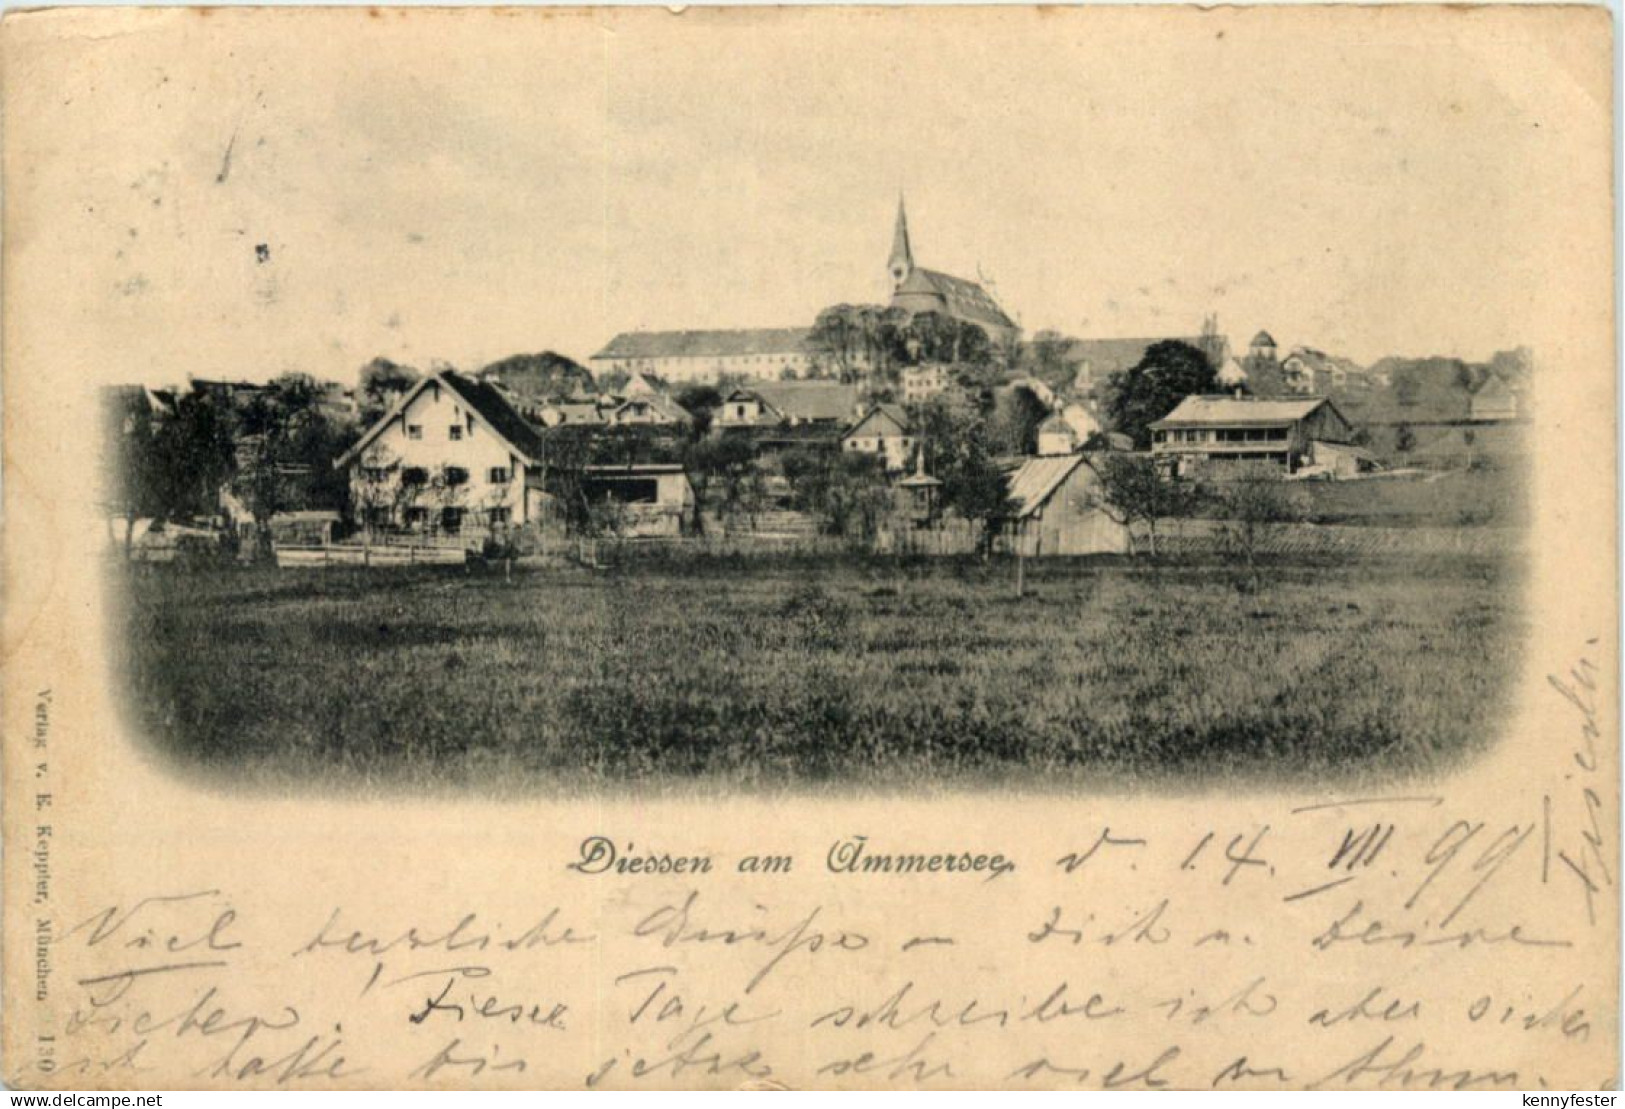 Diessen am Ammersee, d. 14. VII. 99
Viel herzliche Grüße an Dich u. Deine
Lieben! Dieser Tage schreibe ich aber sicher
ich hatte bis jetzt sehr viel zu thun.
Verlag v. E. Keppler, München 130
de.delcampe.net
kennyfester